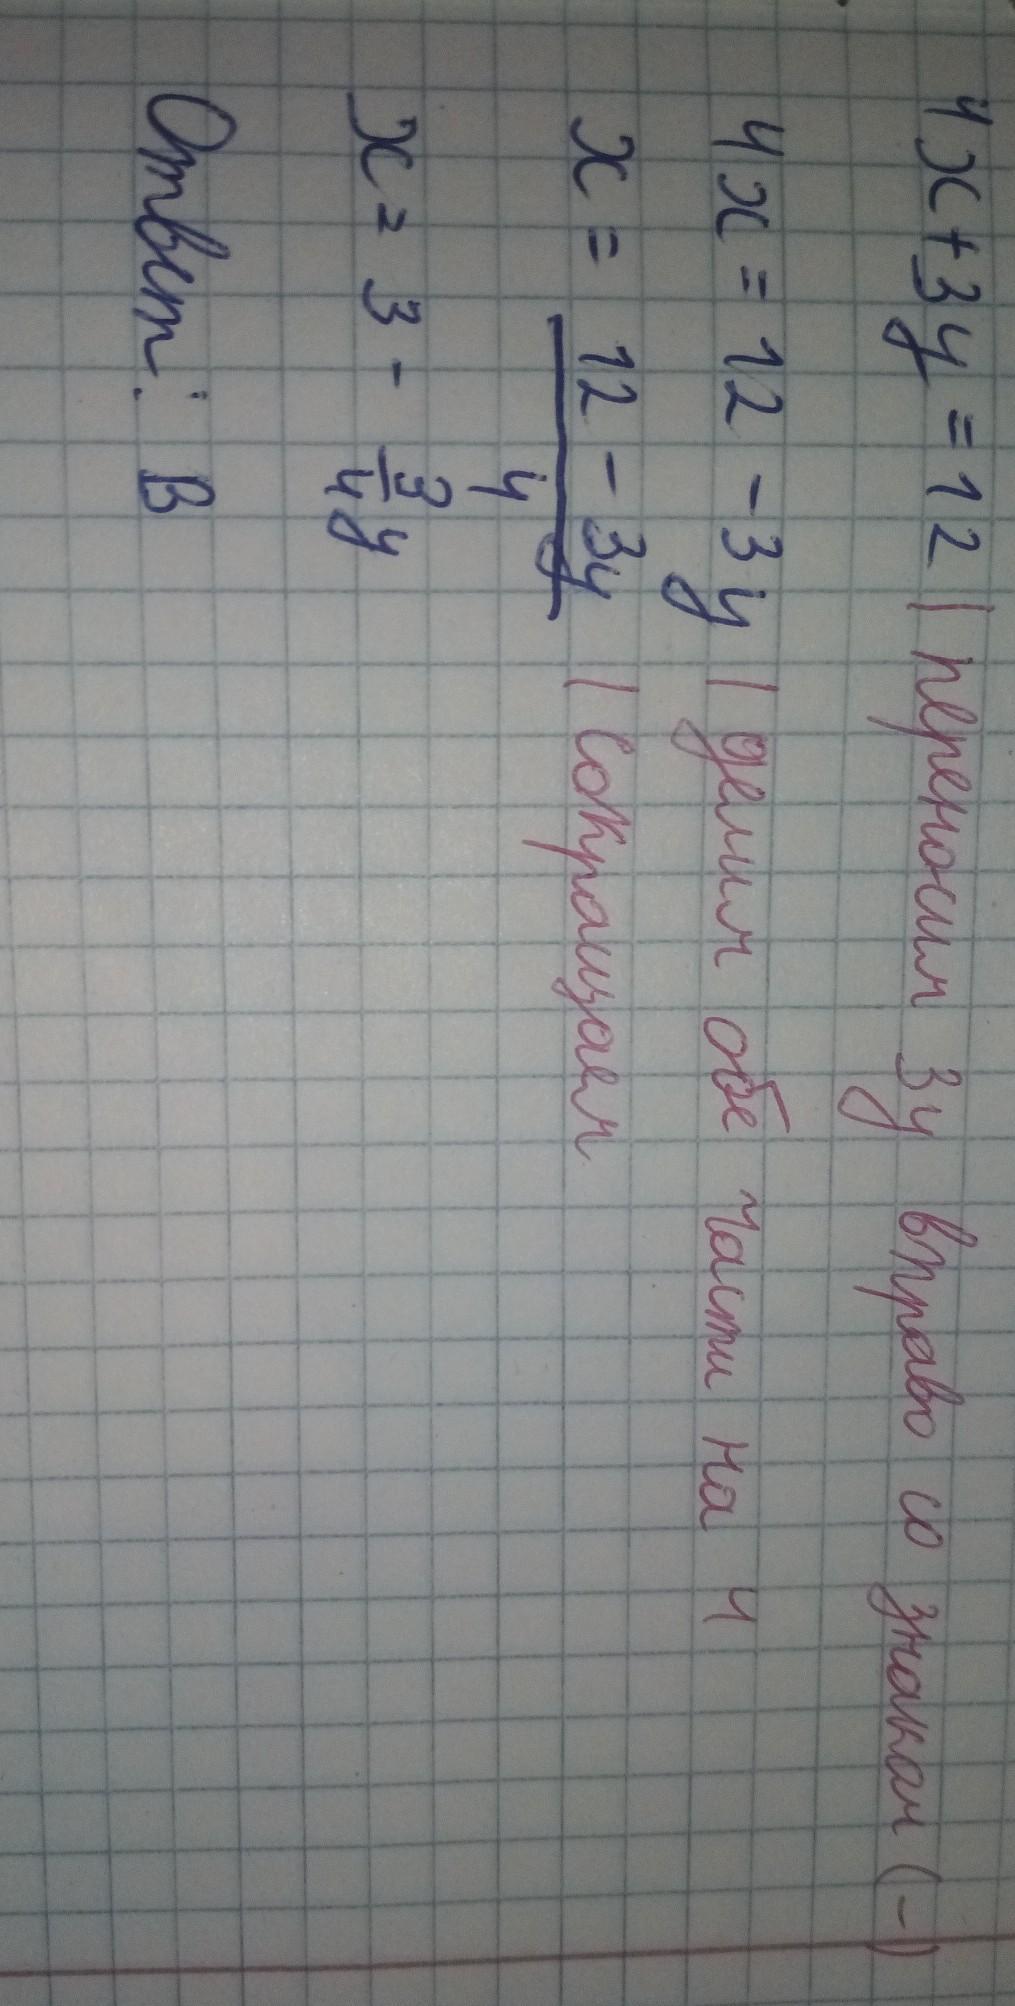 4x + 3y = 12 | переносим 3y вправо со знаком (-)
4x = 12 - 3y | делим обе части на 4
x = \frac{12 - 3y}{4} | Сокращаем
x = 3 - \frac{3}{4}y
Ответ: В